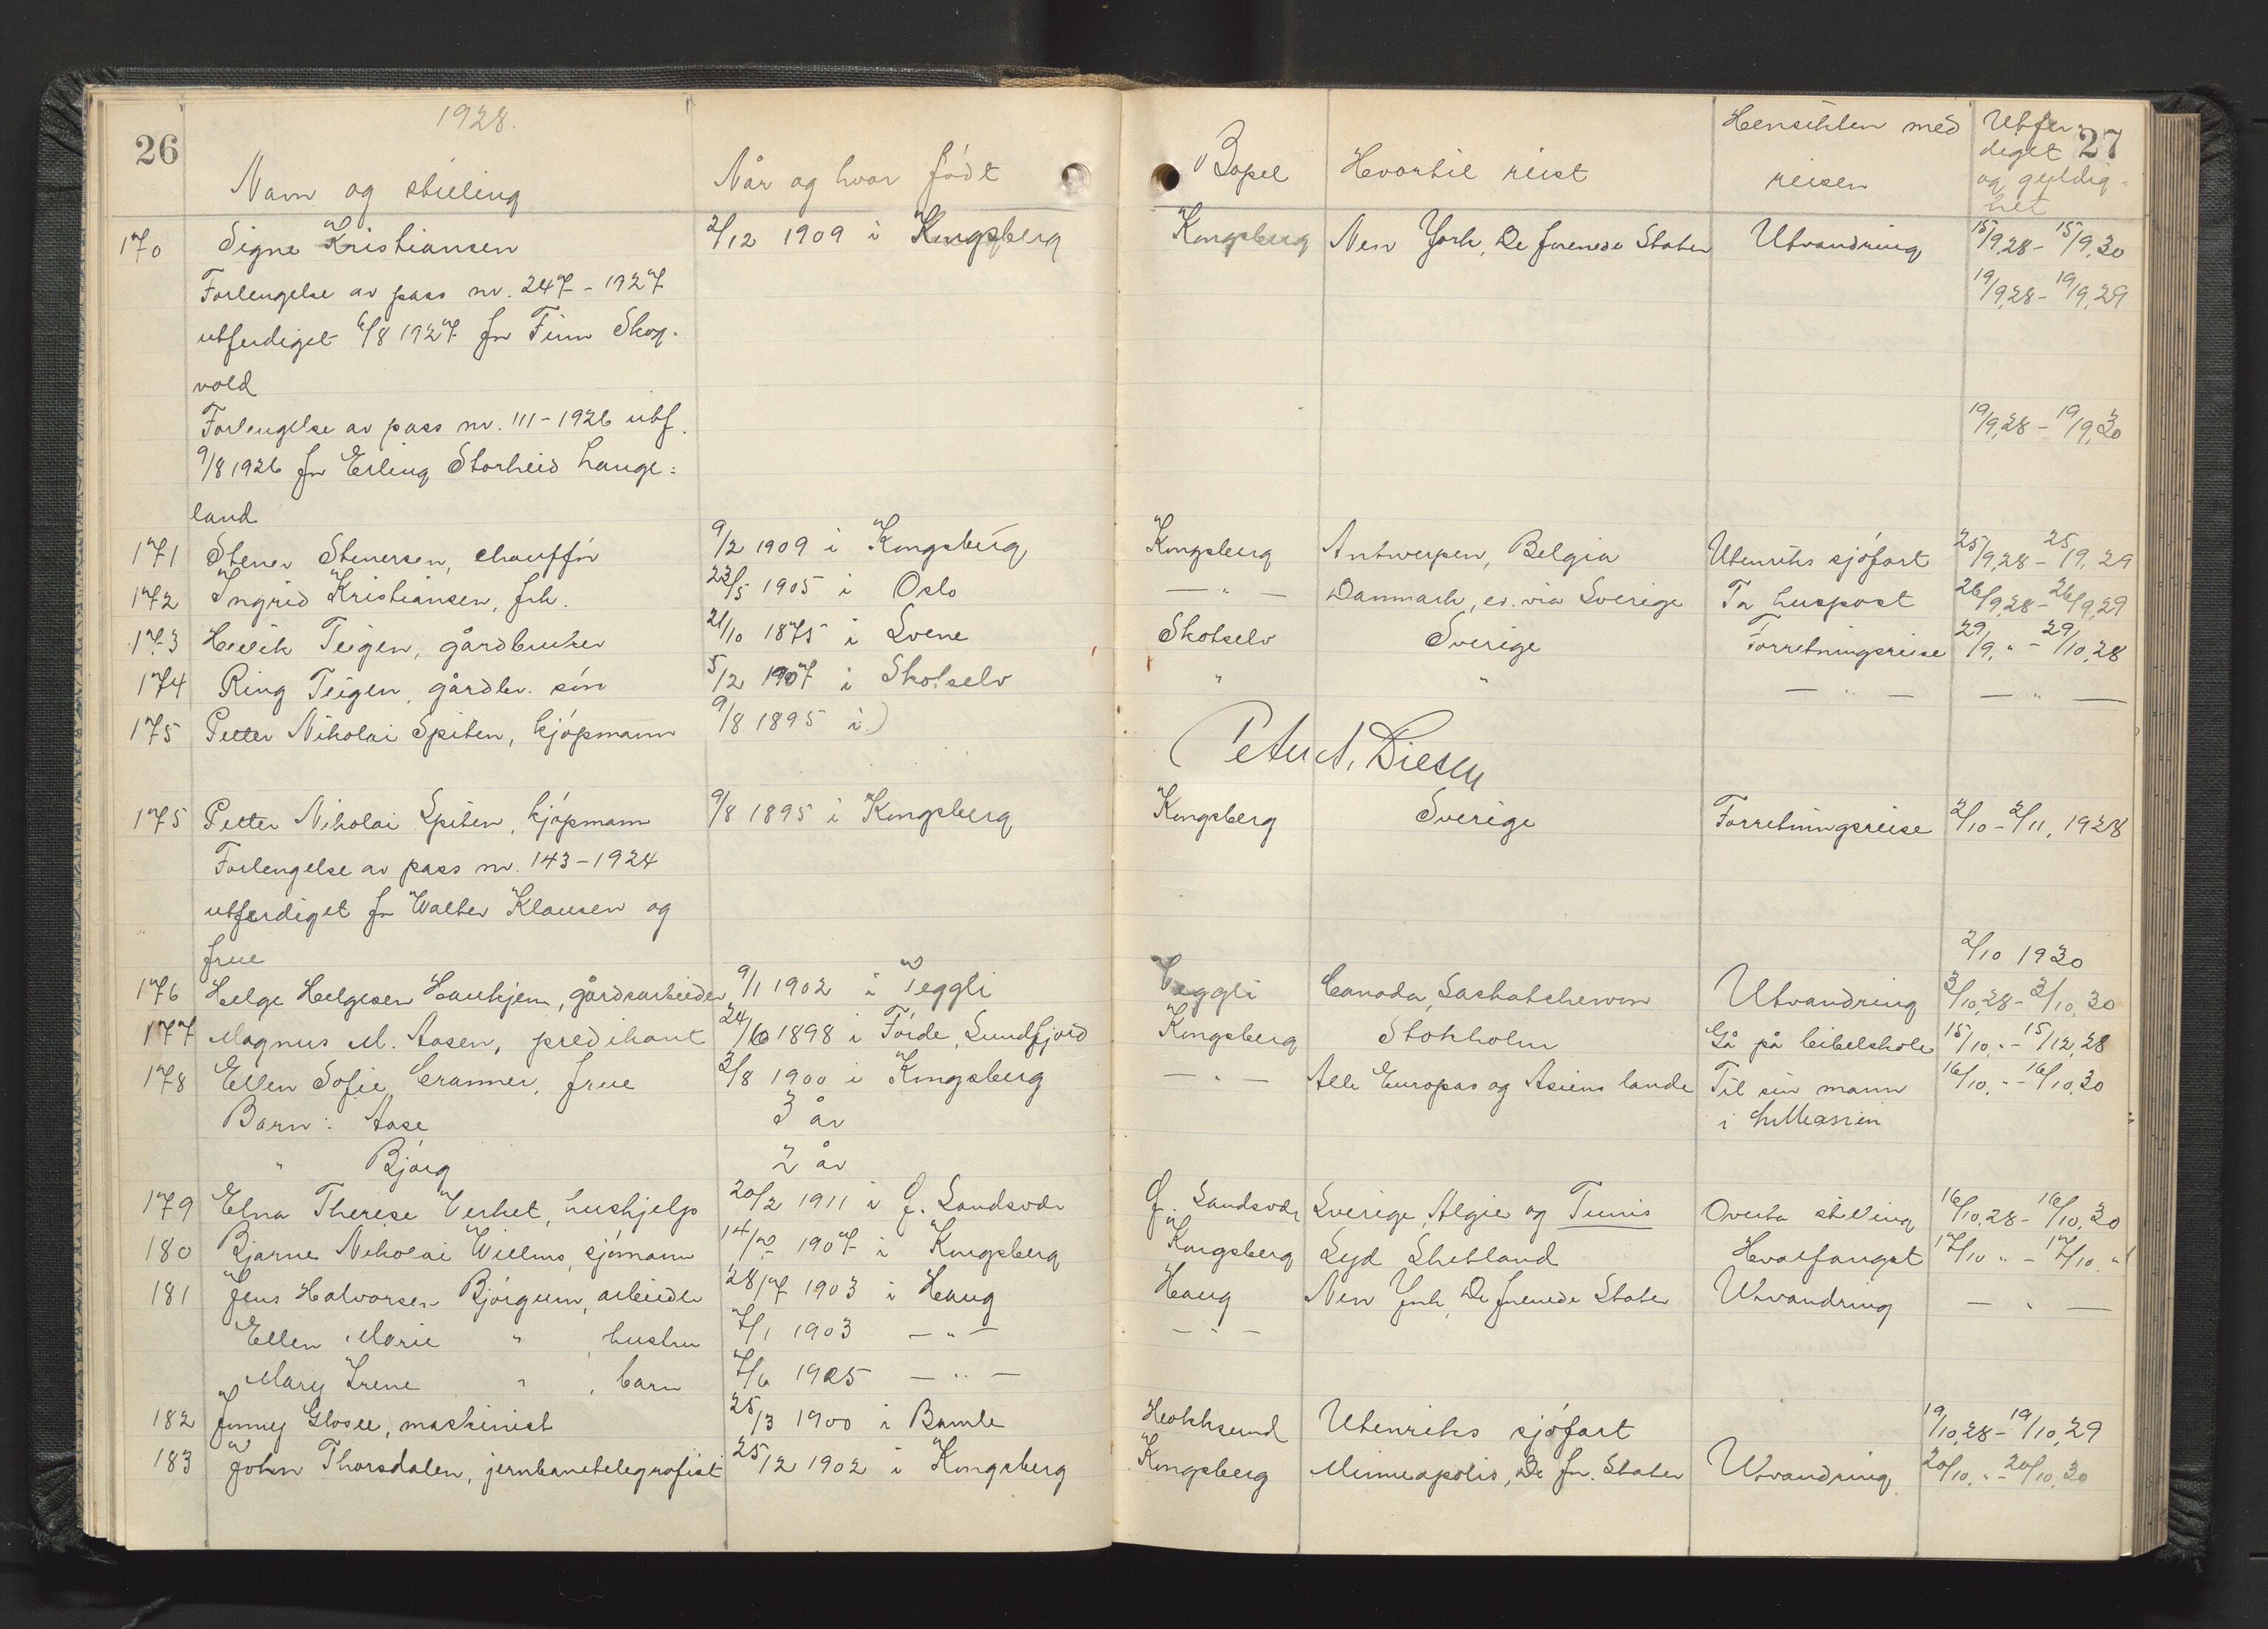 26
1928.
Navn og stilling
Når og hvor født
Bopel
Hvortil reist
Hensikten med
reisen
Utfer
diget 27
og gyldig-
het
170 Signe Kristiansen 2/12 1909 i Kongsberg Kongsberg New York, De forenede Stater Utvandring 15/9.28 - 15/9.30
Forlengelse av pass nr. 247 - 1927 19/9.28 - 19/9.29
utferdiget 6/8 1927 for Finn Skog-
vold
Forlengelse av pass nr. 111 - 1926 utf. 19/9.28 - 19/9.30
9/8 1926 for Erling Storheid Lange=
land
171 Stener Stenersen, chauffør 9/2 1909 i Kongsberg Kongsberg Antwerpen, Belgia Utenriks sjøfart 25/9.28 - 25/9.29
172 Ingrid Kristiansen, frk. 23/5 1905 i Oslo — " — Danmark, ev. via Sverige Ta huspost 26/9.28 - 26/9.29
173 Henrik Teigen, gårdbruker 21/10 1875 i Svene Skotselv Sverige Forretningsreise 29/9. " - 29/10.28
174 Ring Teigen, gårdbr. søn 5/12 1907 i Skotselv " " — " — — " —
175 Petter Nikolai Spiten, kjøpmann 9/8 1895 i )
Peter A. Diesen
175 Petter Nikolai Spiten, kjøpmann 9/8 1895 i Kongsberg Kongsberg Sverige Forretningsreise 2/10 - 2/11, 1928
Forlengelse av pass nr. 143 - 1924
utferdiget for Walter Klausen og
frue 2/10 1930
176 Helge Helgesen Haukjem, gårdsarbeider 9/1 1902 i Veggli Veggli Canada, Saskatchewan Utvandring 3/10.28 - 3/10.30
177 Magnus M. Aasen, predikant 24/10 1898 i Førde, Sundfjord Kongsberg Stokholm Gå på bibelskole 15/10. " - 15/12.28
178 Ellen Sofie Cranner, frue 3/8 1900 i Kongsberg — " — Alle Europas og Asiens lande Til sin mann 16/10. " - 16/10.30
Barn: Aase 3 år i Lilleasien
" Bjørg 2 år
179 Elna Therese Verket, hushjelp 20/2 1911 i Y. Sandsvær Y. Sandsvær Sverige, Algie og Tunis Overta stilling 16/10.28 - 16/10.30
180 Bjarne Nikolai Willms, sjømann 14/10 1907 i Kongsberg Kongsberg Syd Shetland Hvalfangst 17/10 " - 17/10. "
181 Jens Halvorsen Bjørgum, arbeider 28/7 1903 i Haug Haug New York, De forenede Stater Utvandring — " —
Ellen Marie " , hustru 7/1 1903 — " — — " —
Mary Irene " , barn 7/6 1925 — " —
182 Jonny Glosli, maskinist 25/3 1900 i Bamle Hokksund Utenriks sjøfart 19/10.28 - 19/10.29
183 John Thorsdalen, jernbanetelegrafist 25/12 1902 i Kongsberg Kongsberg Minneapolis, De for. Stater Utvandring 20/10. " - 20/10.30